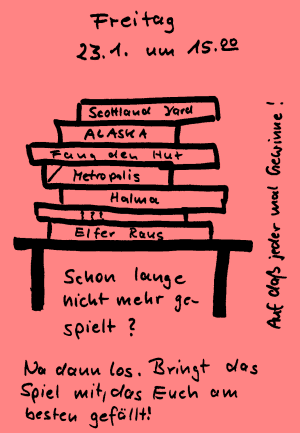 Freitag
23.1. um 15.00
Scottland Yard
ALASKA
Fang den Hut
Metropolis
Halma
???
Elfer Raus
Schon lange
nicht mehr ge-
spielt?
Auf daß jeder mal Gewinne!
Na dann los. Bringt das
Spiel mit, das Euch am
besten gefällt!